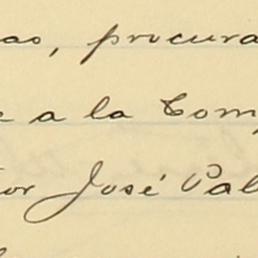 ao, procura
e a la Com
tor José Pal